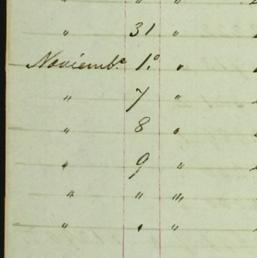 " " "
" 31 "
Noviembe 1.º "
" 7 "
" 8 "
" 9 "
" " "
" " "